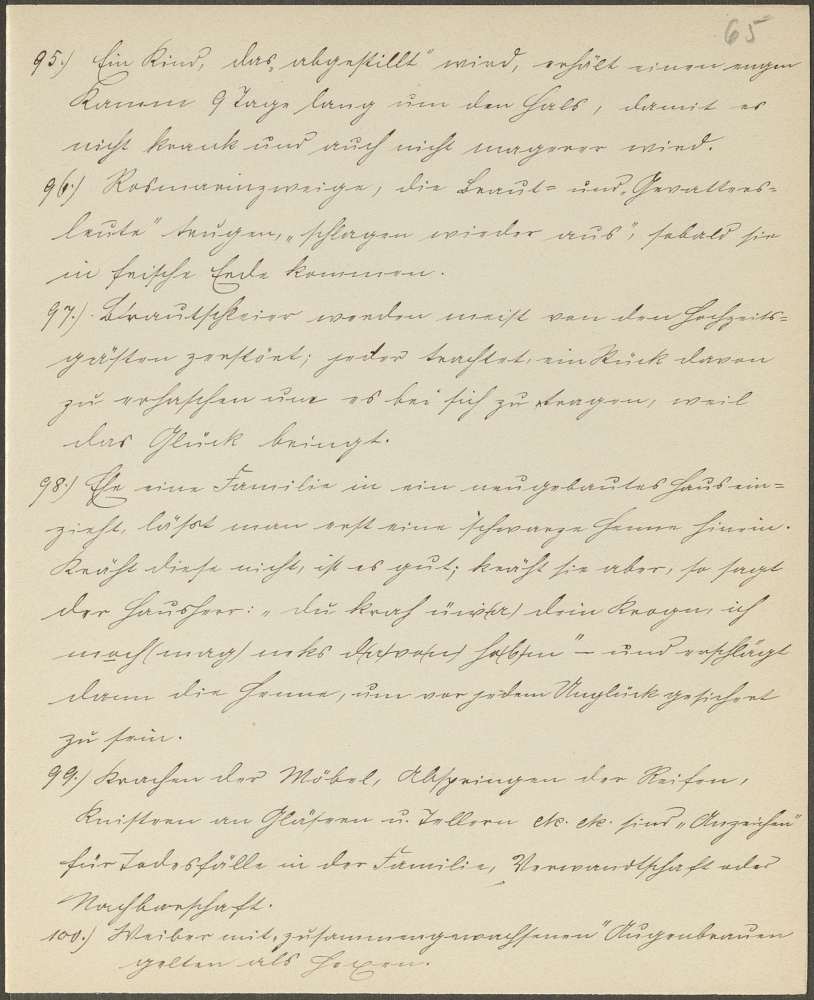 65
95.) Ein Kind, das „abgestillt“ wird, erhält einen engen
Kamm 9 Tage lang um den Hals, damit es
nicht krank und auch nicht magerer wird.
96.) Rosmarinzweige, die Braut= und „Gevatters=
leute“ trugen, „schlagen wieder aus“, sobald sie
in frische Erde kommen.
97.) Brautschleier werden meist von den Hochzeits=
gästen zerstört; jeder trachtet, ein Stück davon
zu erhaschen und es bei sich zu tragen, weil
das Glück bringt.
98.) Ehe eine Familie in ein neugebautes Haus ein=
zieht, läßt man erst eine schwarze Henne hinein.
Kräht diese nicht, ist es gut; kräht sie aber, so sagt
der Hausherr: „du krah üw(a) dein Krogn, ich
moch (mag) neks d(a)vo(n) ho(b)m“ – und erschlägt
dann die Henne, um vor jedem Unglück gesichert
zu sein.
99.) Krachen der Möbel, Abspringen der Reifen,
Knistern an Gläsern u. Tellern etc. etc. sind „Anzeichen“
für Todesfälle in der Familie, Verwandtschaft oder
Nachbarschaft.
100.) Weiber mit „zusammengewachsenen“ Augenbrauen
gelten als Hexen.